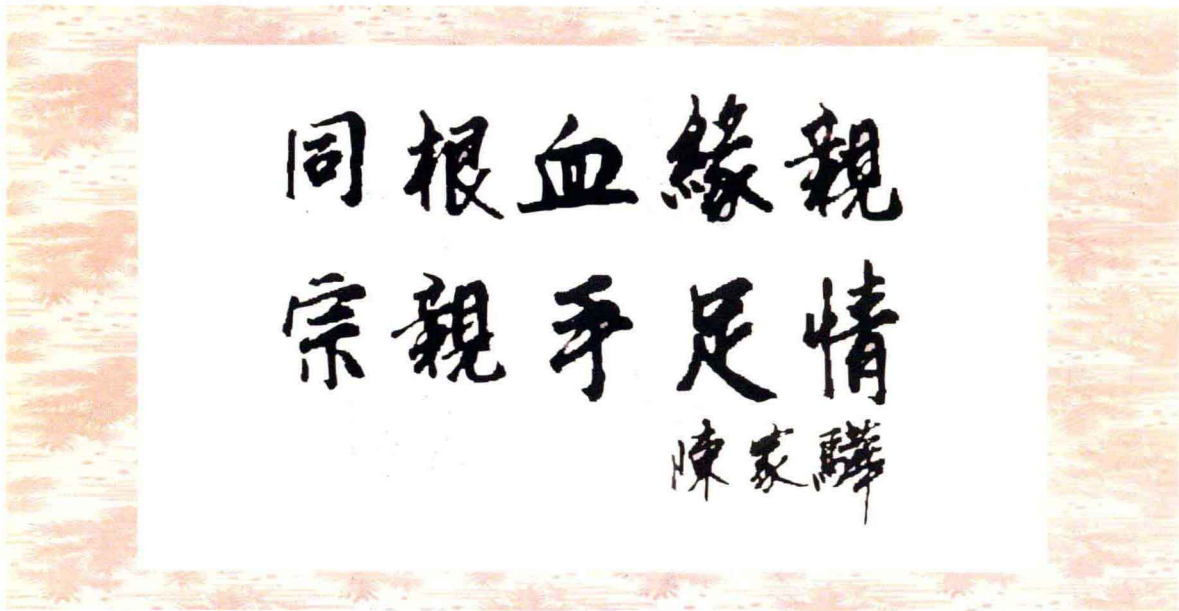 同根血緣親
宗親手足情
陳家驊